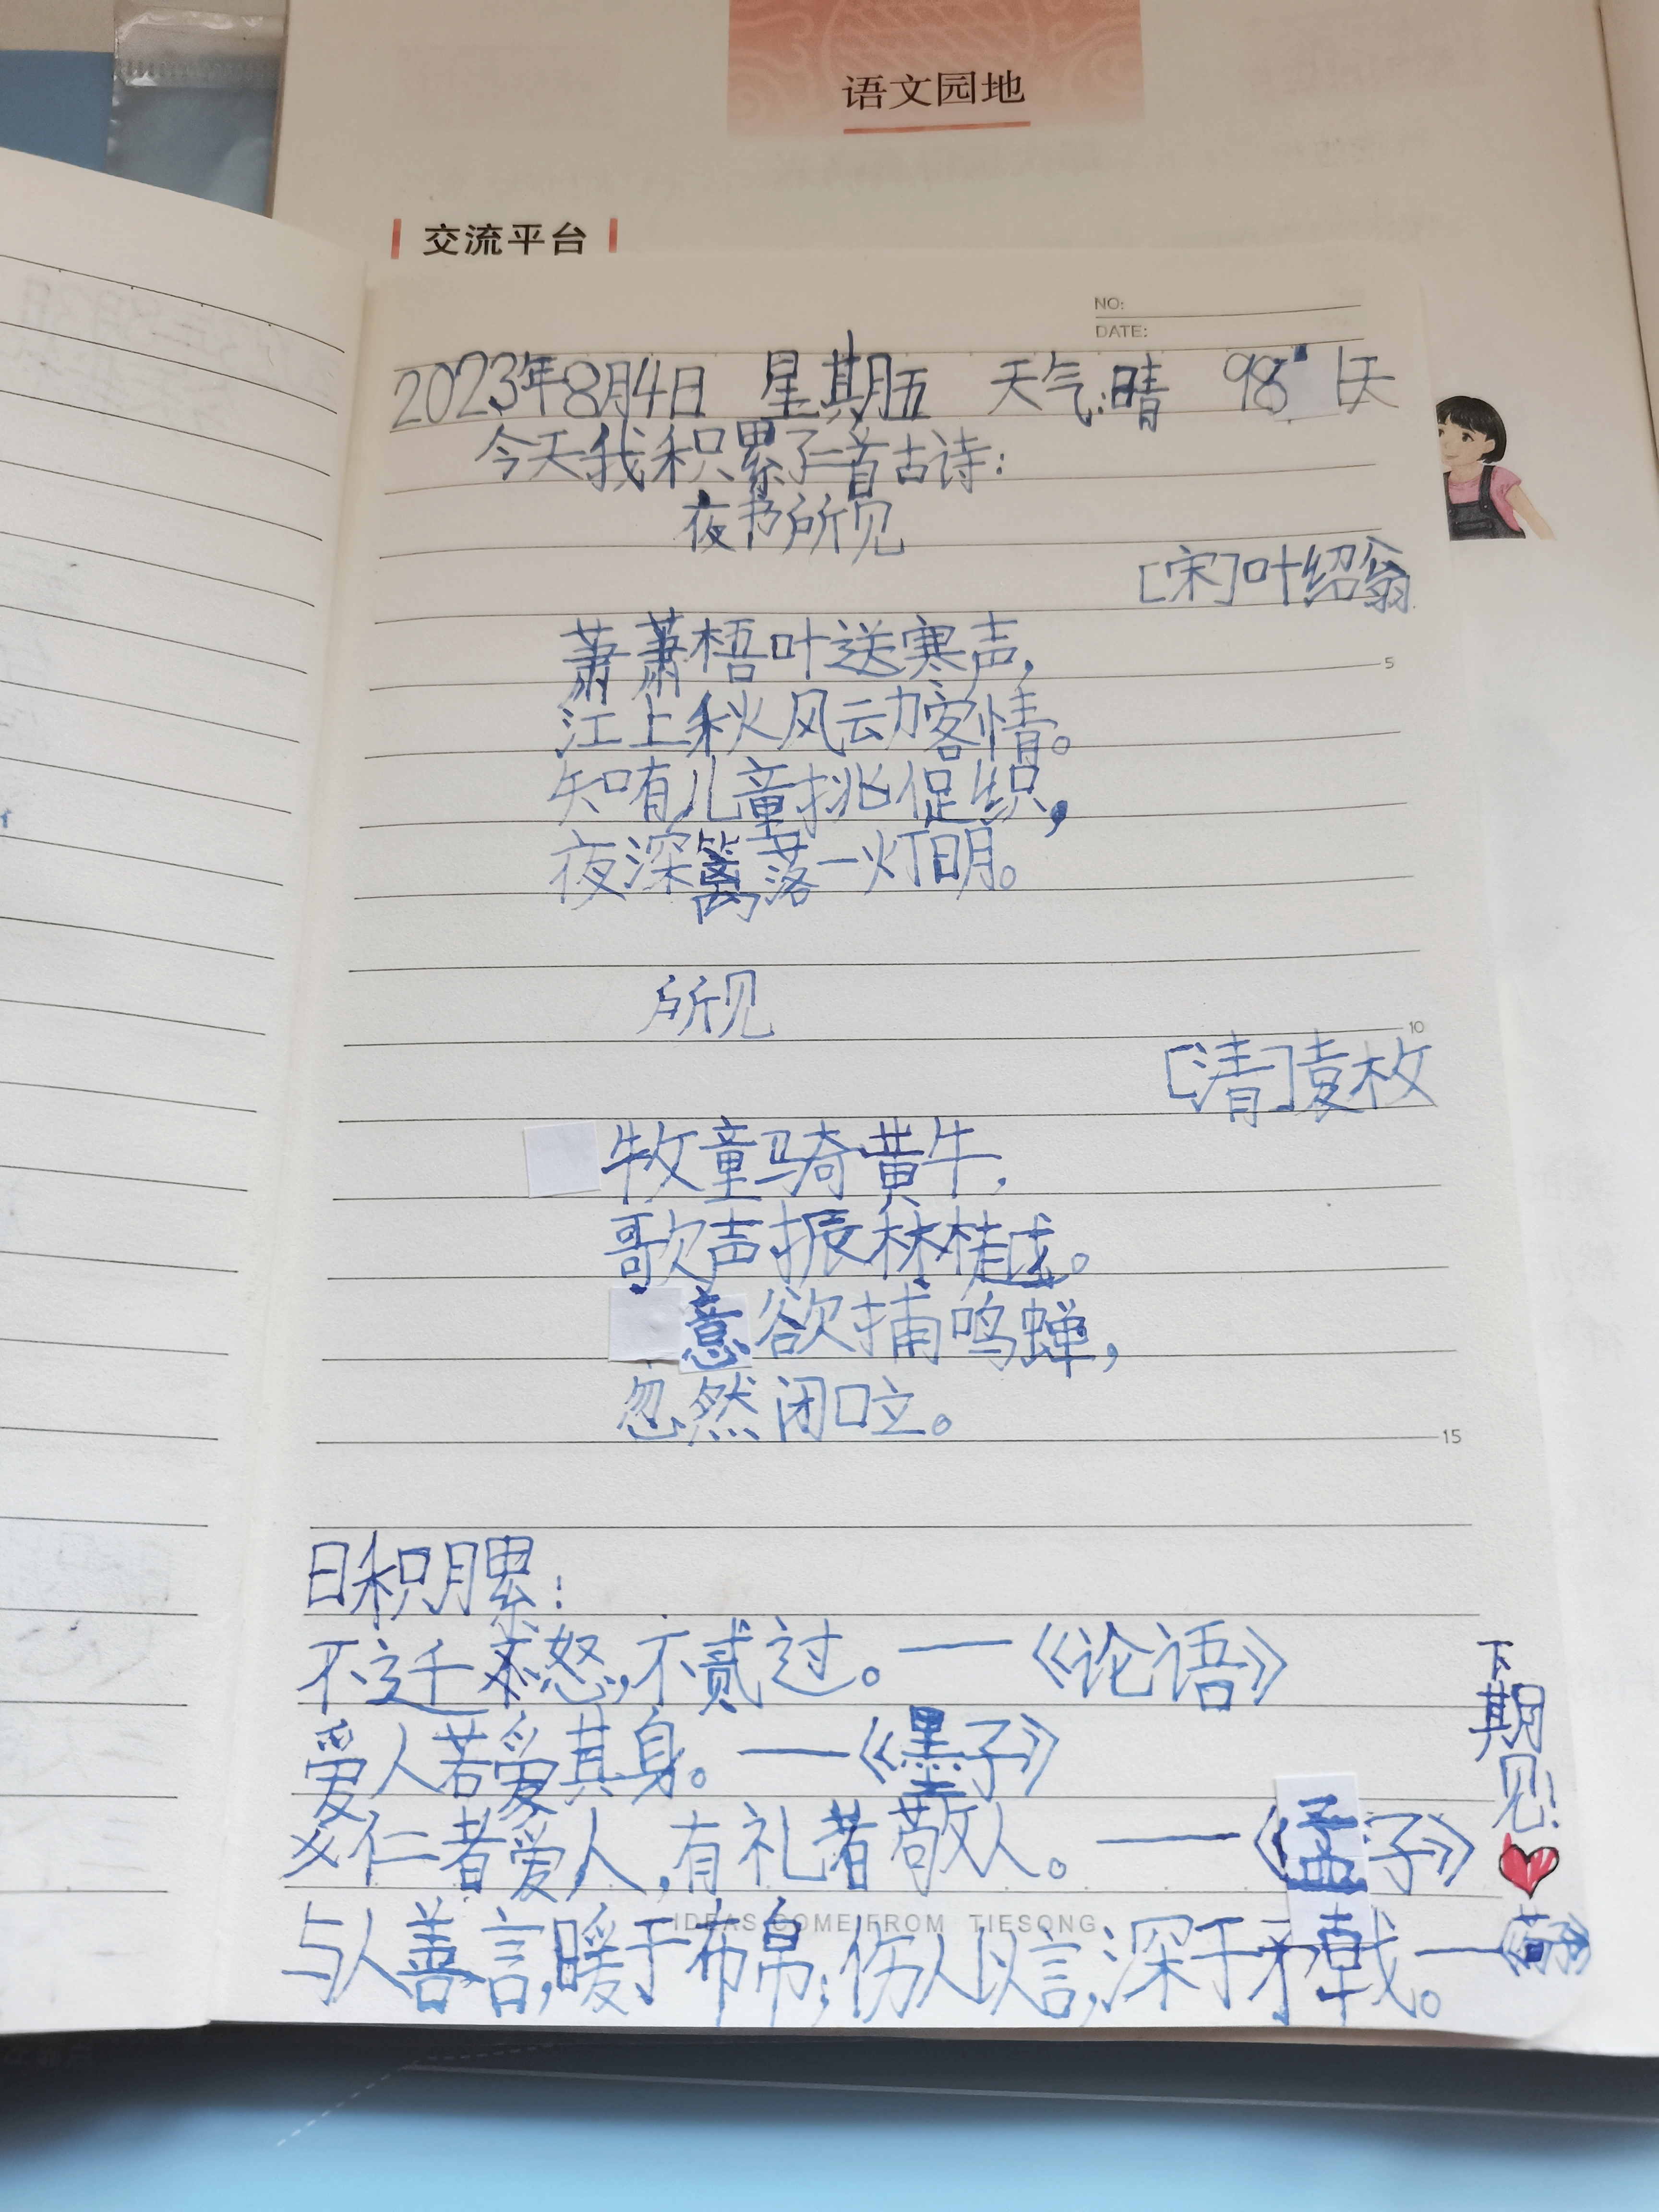 语文园地
交流平台
NO:
DATE:
2023年8月4日 星期五 天气:晴 98 天
今天我积累了二首古诗:
夜书所见
[宋]叶绍翁
萧萧梧叶送寒声,
江上秋风动客情。
知有儿童挑促织,
夜深篱落一灯明。
所见
[清]袁枚
牧童骑黄牛,
歌声振林樾。
意欲捕鸣蝉,
忽然闭口立。
日积月累:
不迁怒,不贰过。——《论语》
爱人若爱其身。——《墨子》
仁者爱人,有礼者敬人。——《孟子》
与人善言,暖于布帛;伤人以言,深于矛戟。——《荀子》
下期见!
IDEAS COME FROM TIESONG
5
10
15